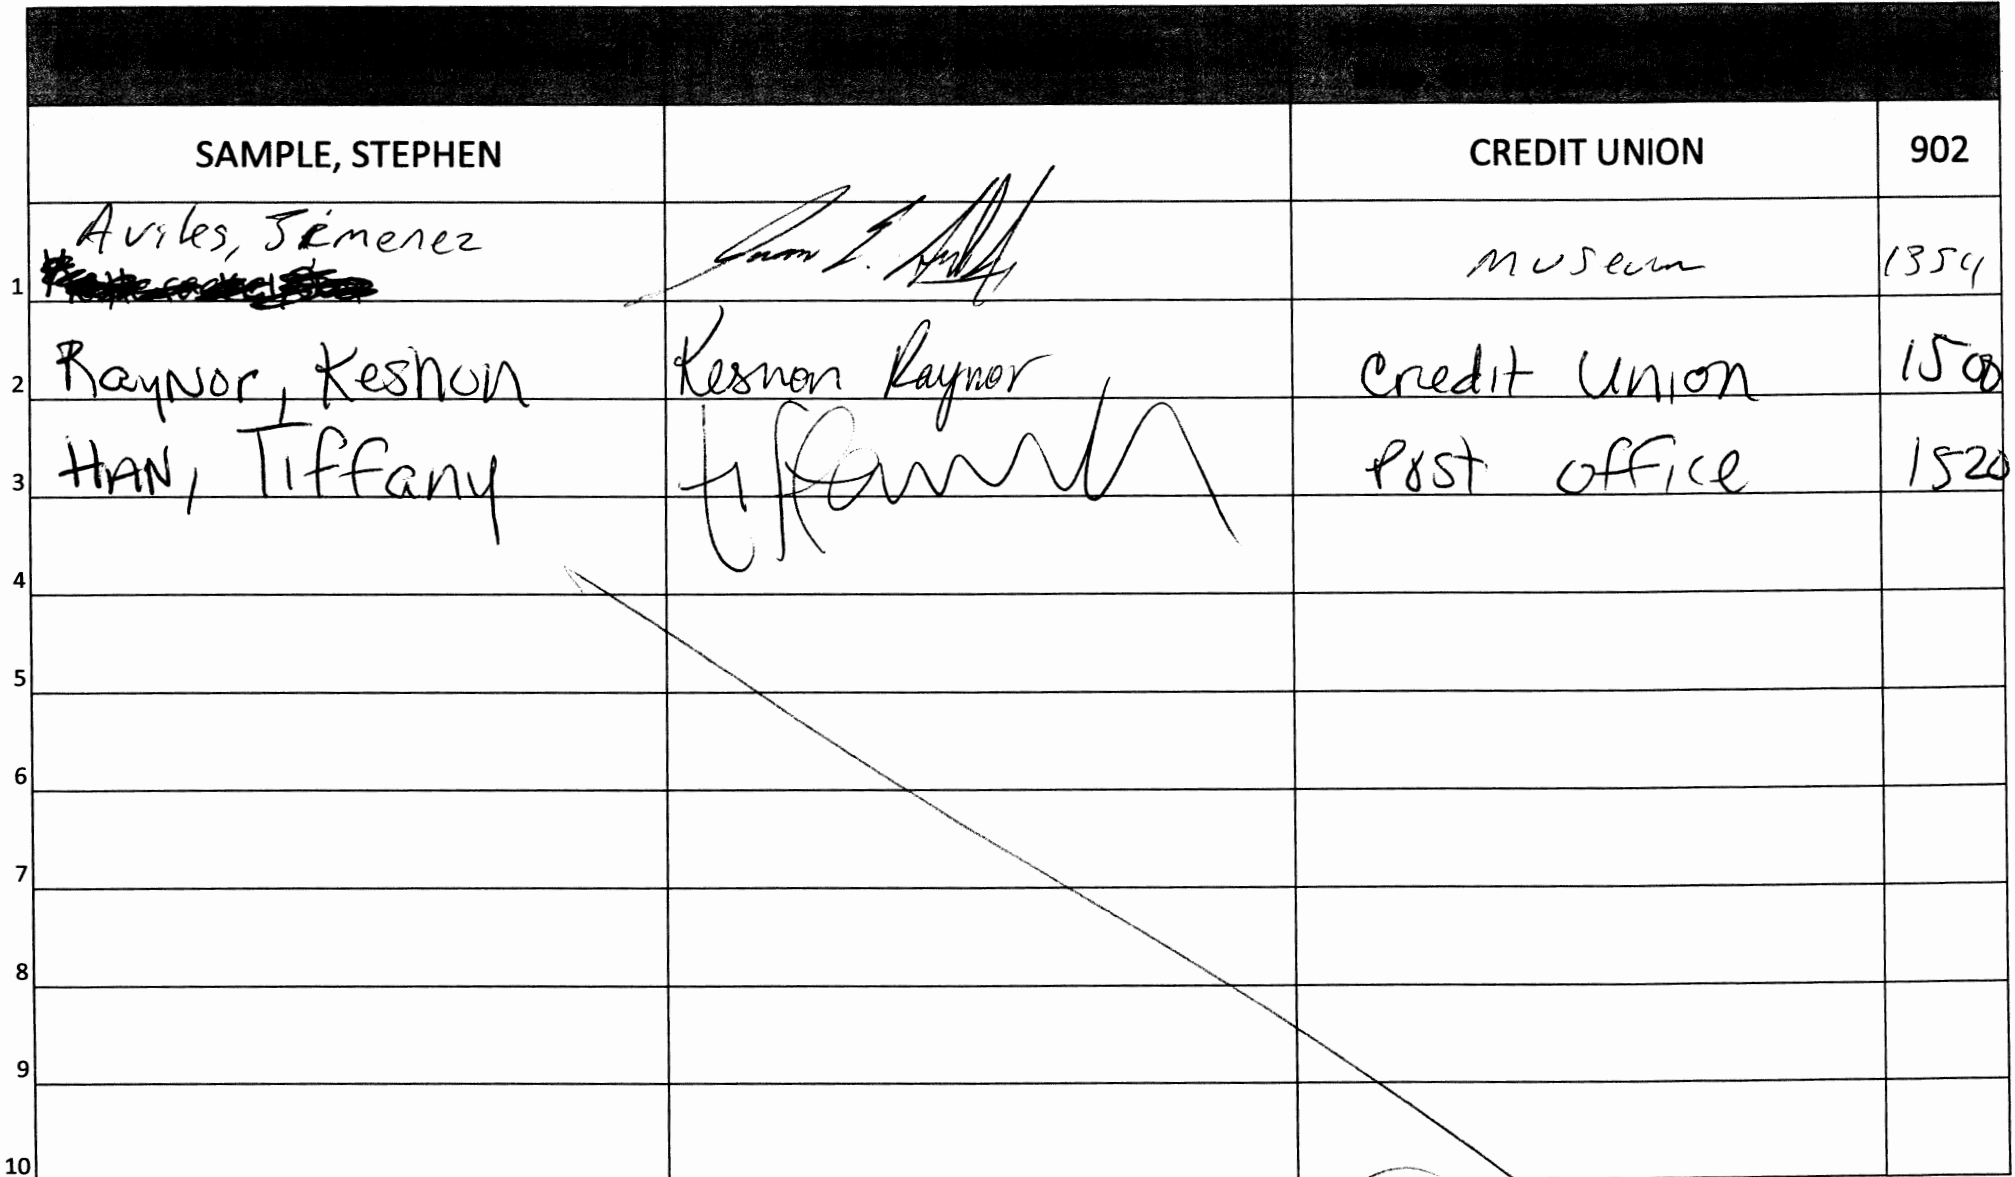 SAMPLE, STEPHEN CREDIT UNION 902
Aviles, Jimenez
1 Museum 1354
2 Raynor, Keshon Keshon Raynor Credit Union 1500
3 HAN, Tiffany Post office 1520
4
5
6
7
8
9
10